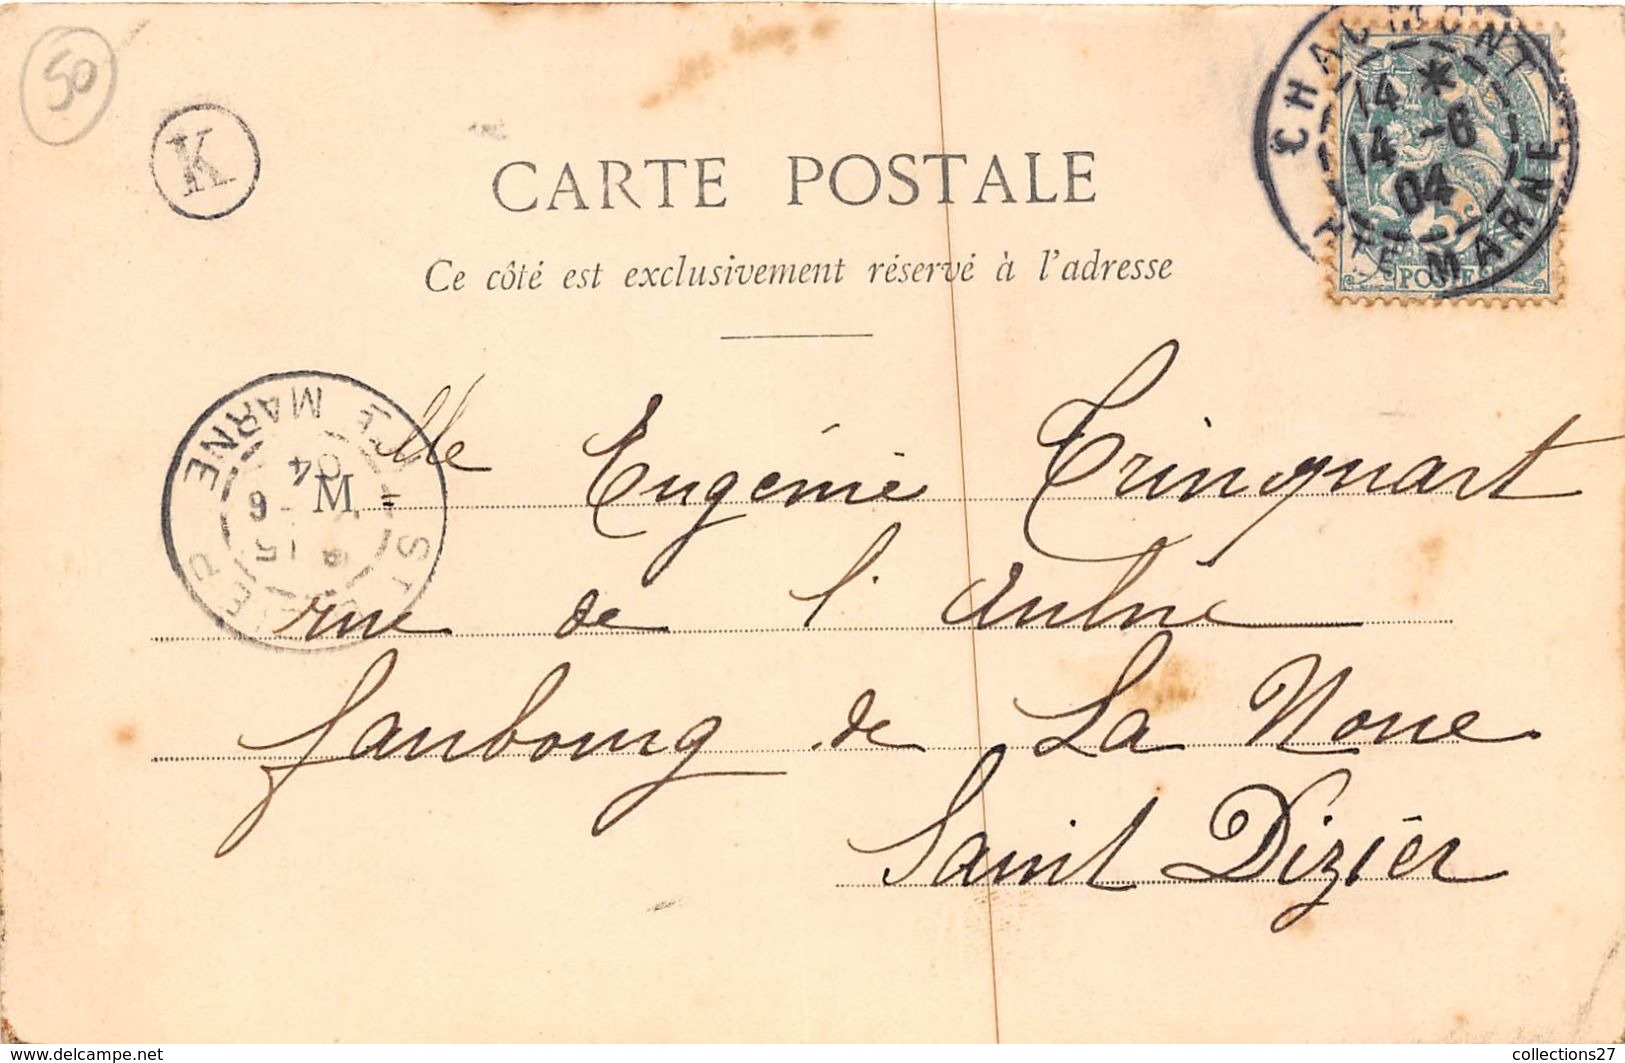 50
K
CARTE POSTALE
Ce côté est exclusivement réservé à l'adresse
CHAUMONT
14 *
14 -6
04
HTE MARNE
POSTES
ST DIZIER
15 -6
04
HTE MARNE
M
elle Eugénie Trinquart
rue de l'Aulne
faubourg de La Noue
Saint Dizier
www.delcampe.net
collections27